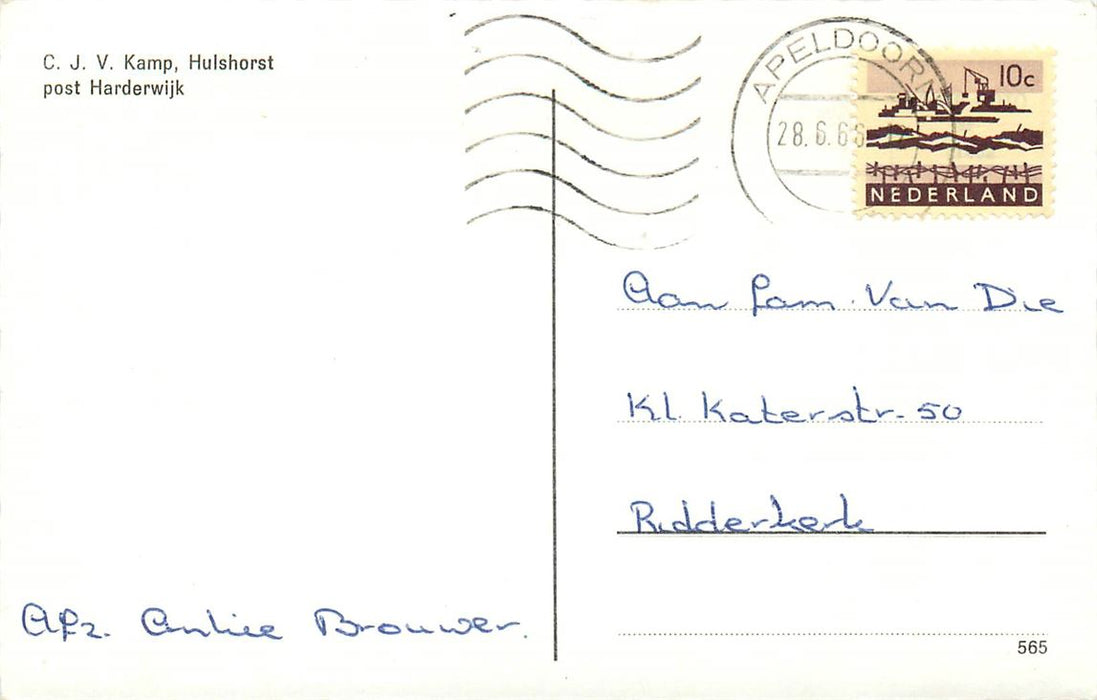 C. J. V. Kamp, Hulshorst
post Harderwijk
APELDOORN
28.6.66
10c
NEDERLAND
Aan fam. Van Die
Kl. Katerstr. 50
Ridderkerk
Afz. Brouwer.
565